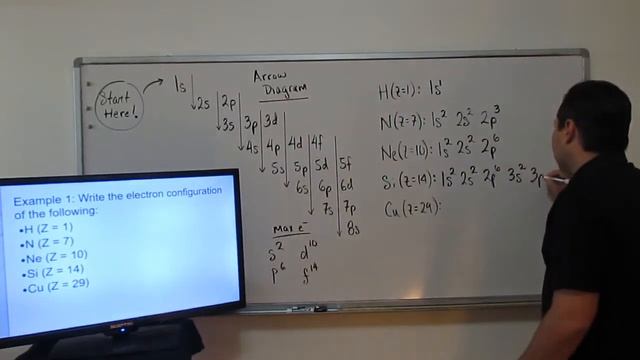 Start Here!
Arrow Diagram
1s
2s 2p
3s 3p 3d
4s 4p 4d 4f
5s 5p 5d 5f
6s 6p 6d
7s 7p
8s
Max e⁻
s² d¹⁰
p⁶ f¹⁴
H(Z=1): 1s¹
N(Z=7): 1s² 2s² 2p³
Ne(Z=10): 1s² 2s² 2p⁶
Si(Z=14): 1s² 2s² 2p⁶ 3s² 3p
Cu(Z=29):
Example 1: Write the electron configuration
of the following:
•H (Z = 1)
•N (Z = 7)
•Ne (Z = 10)
•Si (Z = 14)
•Cu (Z = 29)